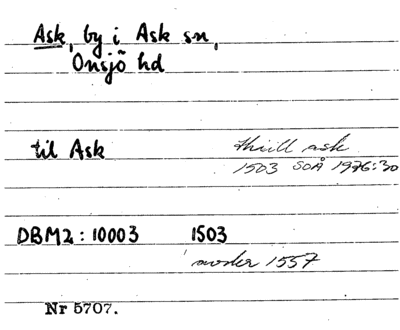 Ask, by i Ask sn,
Onsjö hd
til Ask
thiill ask
1503 SOÅ 1976:30
DBM2: 10003 1503
moder 1557
Nr 5707.